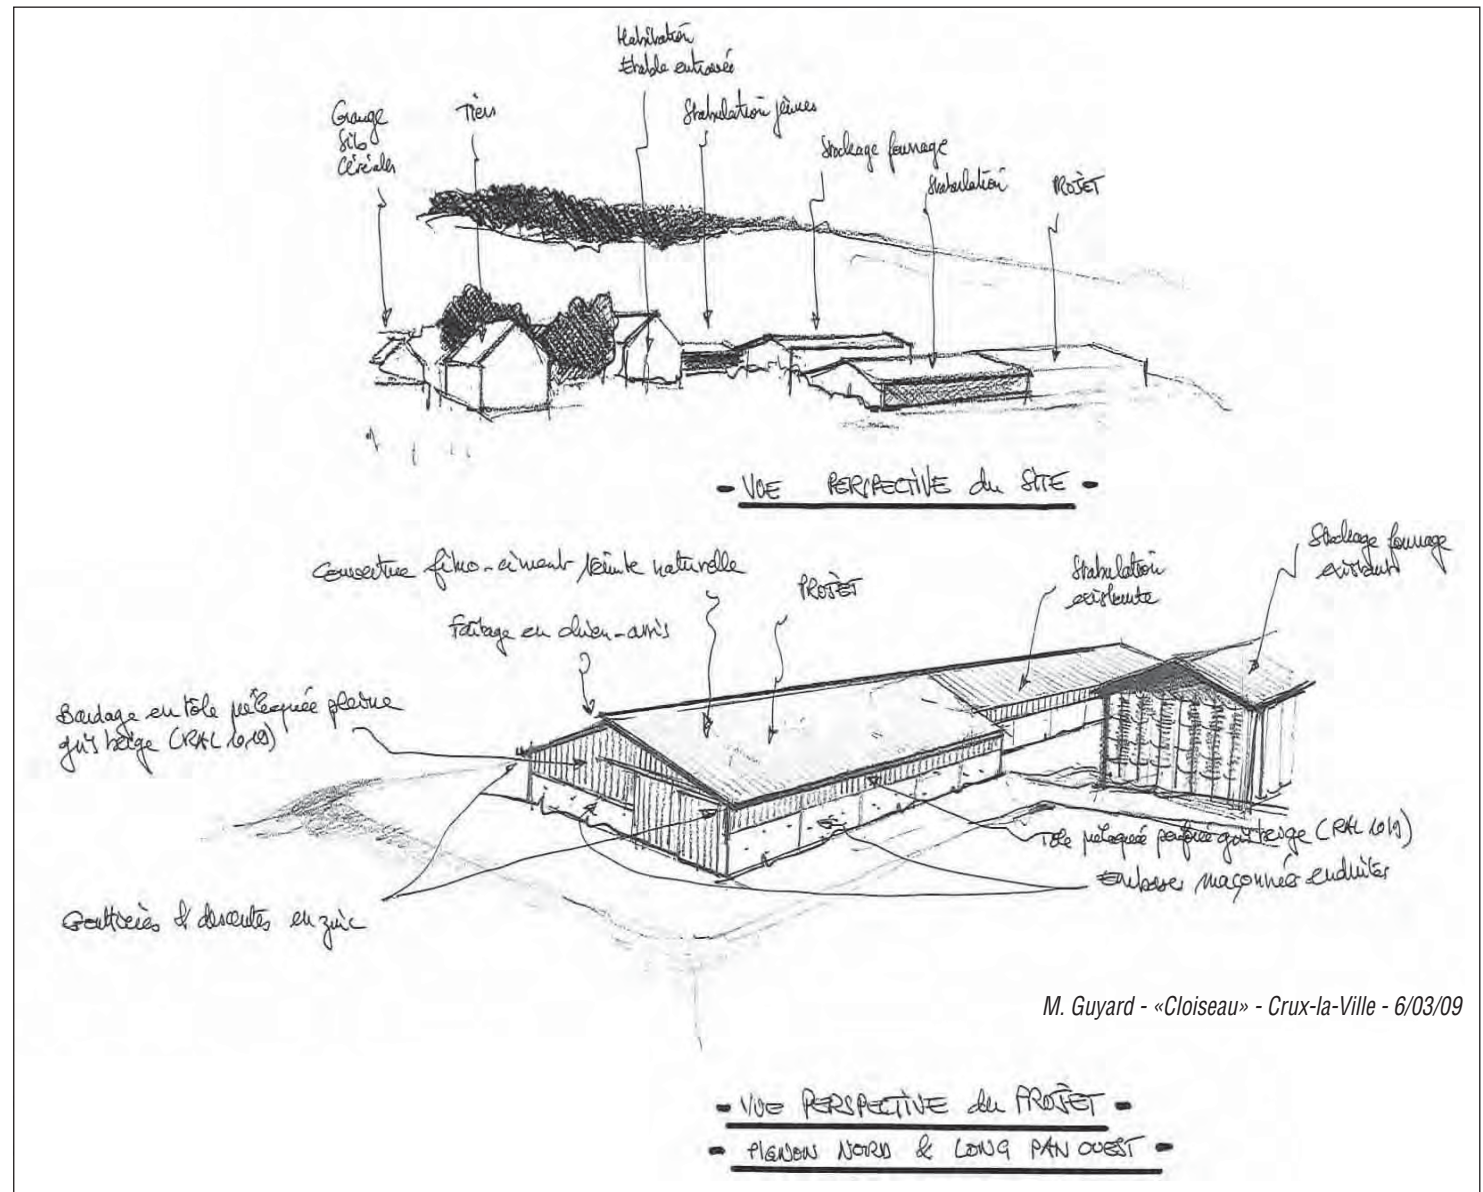 Habitation
Etable entravée
Grange
Silo
Céréales
Tiers
Stabulation jeunes
Stockage fourrage
Stabulation
PROJET
- VUE PERSPECTIVE du SITE -
Couverture fibro-ciment teinte naturelle
PROJET
Stabulation
existante
Stockage fourrage
existant
Faîtage en chien-assis
Bardage en tôle prélaquée pleine
gris beige (RAL 1019)
Tôle prélaquée perforée gris beige (RAL 1019)
maçonnées enduites
Gouttières & descentes en zinc
M. Guyard - «Cloiseau» - Crux-la-Ville - 6/03/09
- VUE PERSPECTIVE du PROJET -
- PIGNON NORD & LONG PAN OUEST -